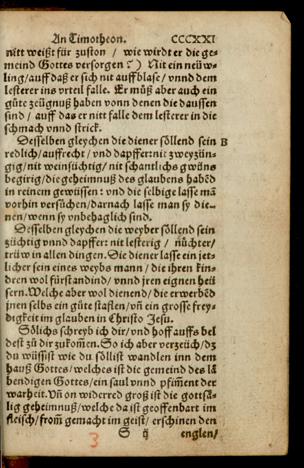 An Timotheon. CCCXXI
nitt weißt für zuston / wie wirdt er die ge-
meind Gottes versorgen ? ) Nit ein neüw-
ling / auff daß er sich nit auffblase / vnnd dem
lesterer ins vrteil falle. Er můß aber auch ein
gůte zeügnuß haben vonn denen die daussen
sind / auff das er nitt falle dem lesterer in die
schmach vnnd strick.
Desselben gleychen die diener söllend sein B
redlich / auffrecht / vnd dapffer: nit zweyzün-
gig / nit weinsüchtig / nit schantlichs gwüns
begirig / die geheimnuß des glaubens habēd
in reinem gewüssen: vnd die selbige lasse mā
vorhin versůchen / darnach lasse man sy die-
nen / wenn sy vnbehaglich sind.
Desselben gleychen die weyber söllend sein
züchtig vnnd dapffer: nit lesterig / nüchter /
trüw in allen dingen. Die diener lasse ein jet-
licher sein eines weybs mann / die ihren kin-
dren wol fürstandind / vnnd jren eignen heü
sern. Welche aber wol dienend / die erwerbēd
jnen selbs ein gůte staflen / vn̄ ein grosse frey-
digkeit im glauben in Christo Jesu.
Sölichs schreyb ich dir / vnd hoff auffs bel
dest zů dir zukom̄en. So ich aber verzeüch / dz
du wüssist wie du söllist wandlen inn dem
hauß Gottes / welches ist die gemeind des lā
bendigen Gottes / ein saul vnnd pfim̄ent der
warheit. Vn̄ on widerred groß ist die gottsä-
lig geheimnuß / welche da ist geoffenbart im
fleisch / from̄ gemacht im geist / erschinen den
3 S ij englen /